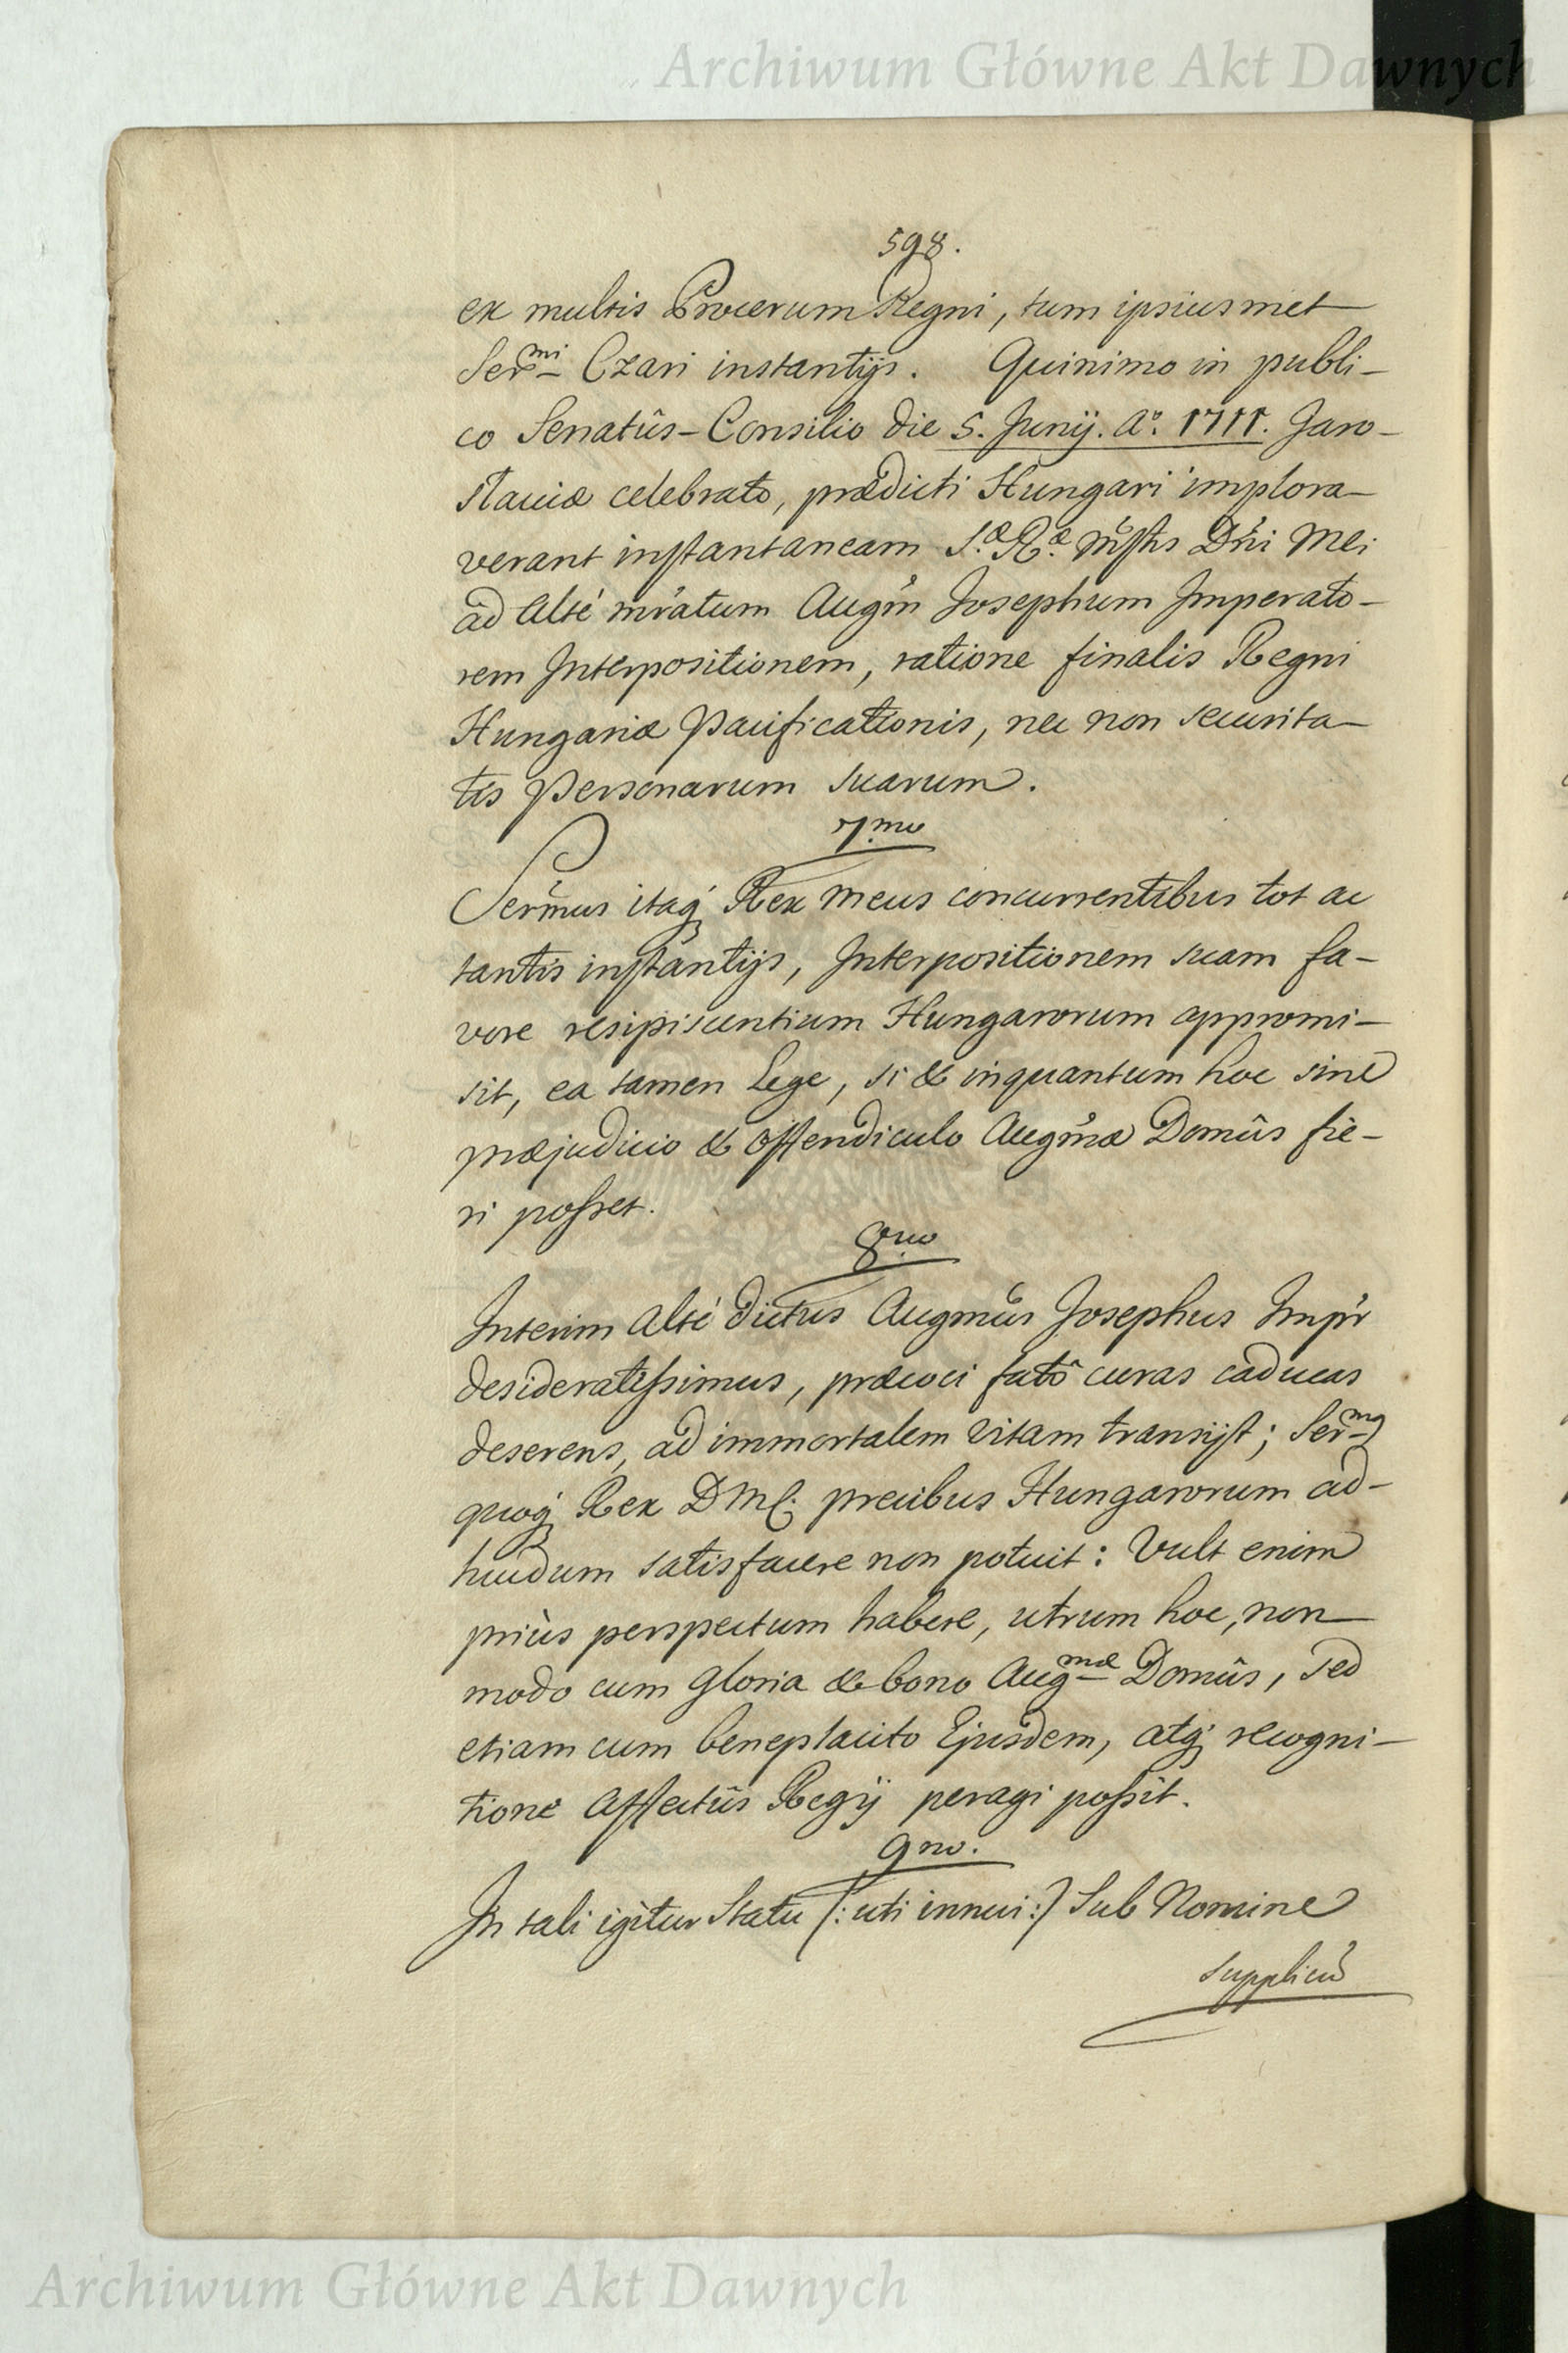 Archiwum Główne Akt Dawnych
598.
ex multis Procerum Regni, tum ipsiusmet
Ser̃mi Czari instantijs. Quinimo in publi-
co Senatûs-Consilio die 5. Junij. Aº. 1711. Jaro-
slaviæ celebrato, prædicti Hungari implora-
verant instantaneam S.æ R.æ Ms̃tis Dñi Mei
ad Altè mr̃atum Augm̃ Josephum Imperato-
rem Interpositionem, ratione finalis Regni
Hungariæ Pacificationis, nec non securita-
tis Personarum suarum.
7.mo
Serm̃us itaq́ Rex Meus concurrentibus tot ac
tantis instantijs, Interpositionem suam fa-
vore resipiscentium Hungarorum appromi-
sit, ea tamen Lege, si & inquantum hoc sine
præjudicio & offendiculo Augm̃æ Domûs fie-
ri posset.
8.vo
Interim Altè dictus Augmũs Josephus Imp̃r
desideratissimus, præcoci fatô curas caducas
deserens, ad immortalem vitam transijt; Ser̃mg
quoq́ Rex D M C. precibus Hungarorum ad-
hucdum satisfacere non potuit: Vult enim
priùs perspectum habere, utrum hoc, non
modo cum gloria & bono Augmæ Domûs, sed
etiam cum beneplacito Ejusdem, atq́ recogni-
tione Affectûs Regij peragi possit.
9no.
In tali igitur Statu (: uti innui:) Sub Nomine
supplicũ
Archiwum Główne Akt Dawnych